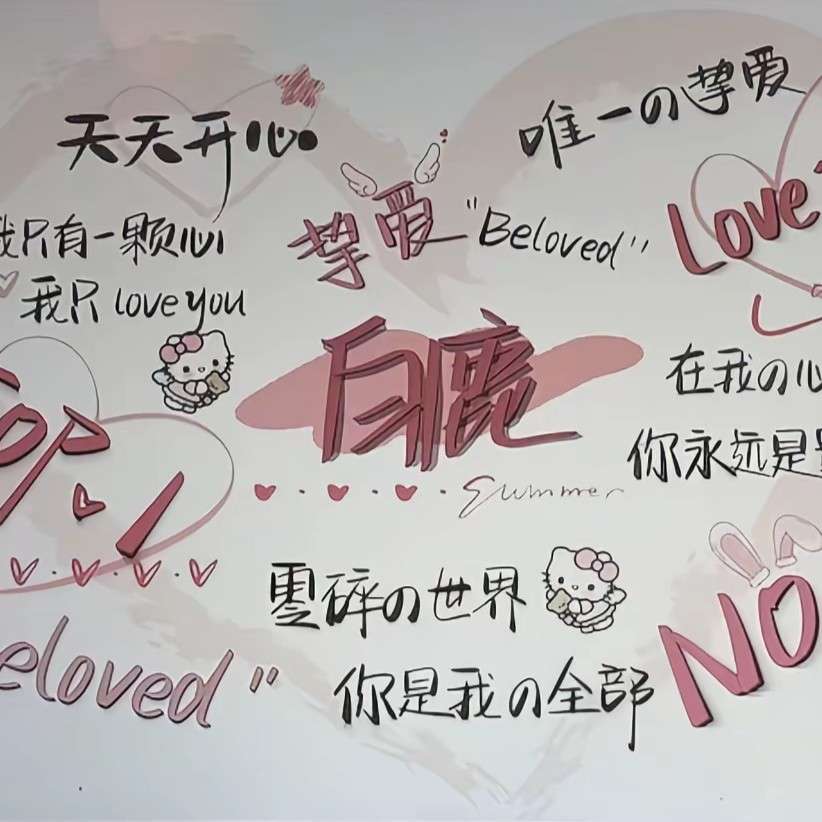 天天开心
唯一の挚爱
挚爱
"Beloved"
Love
我只有一颗心
我只 love you
白鹿
在我の心
你永远是
Summer
零碎の世界
NO
eloved"
你是我の全部